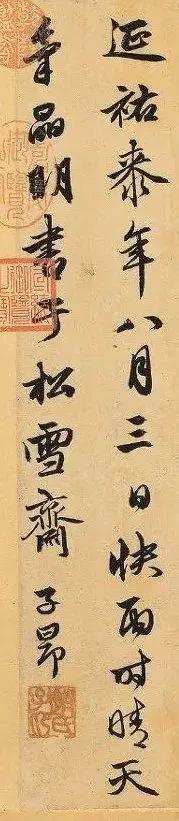 延祐叅年八月三日快雨时晴天
氣晶明書于松雪齋 子昂